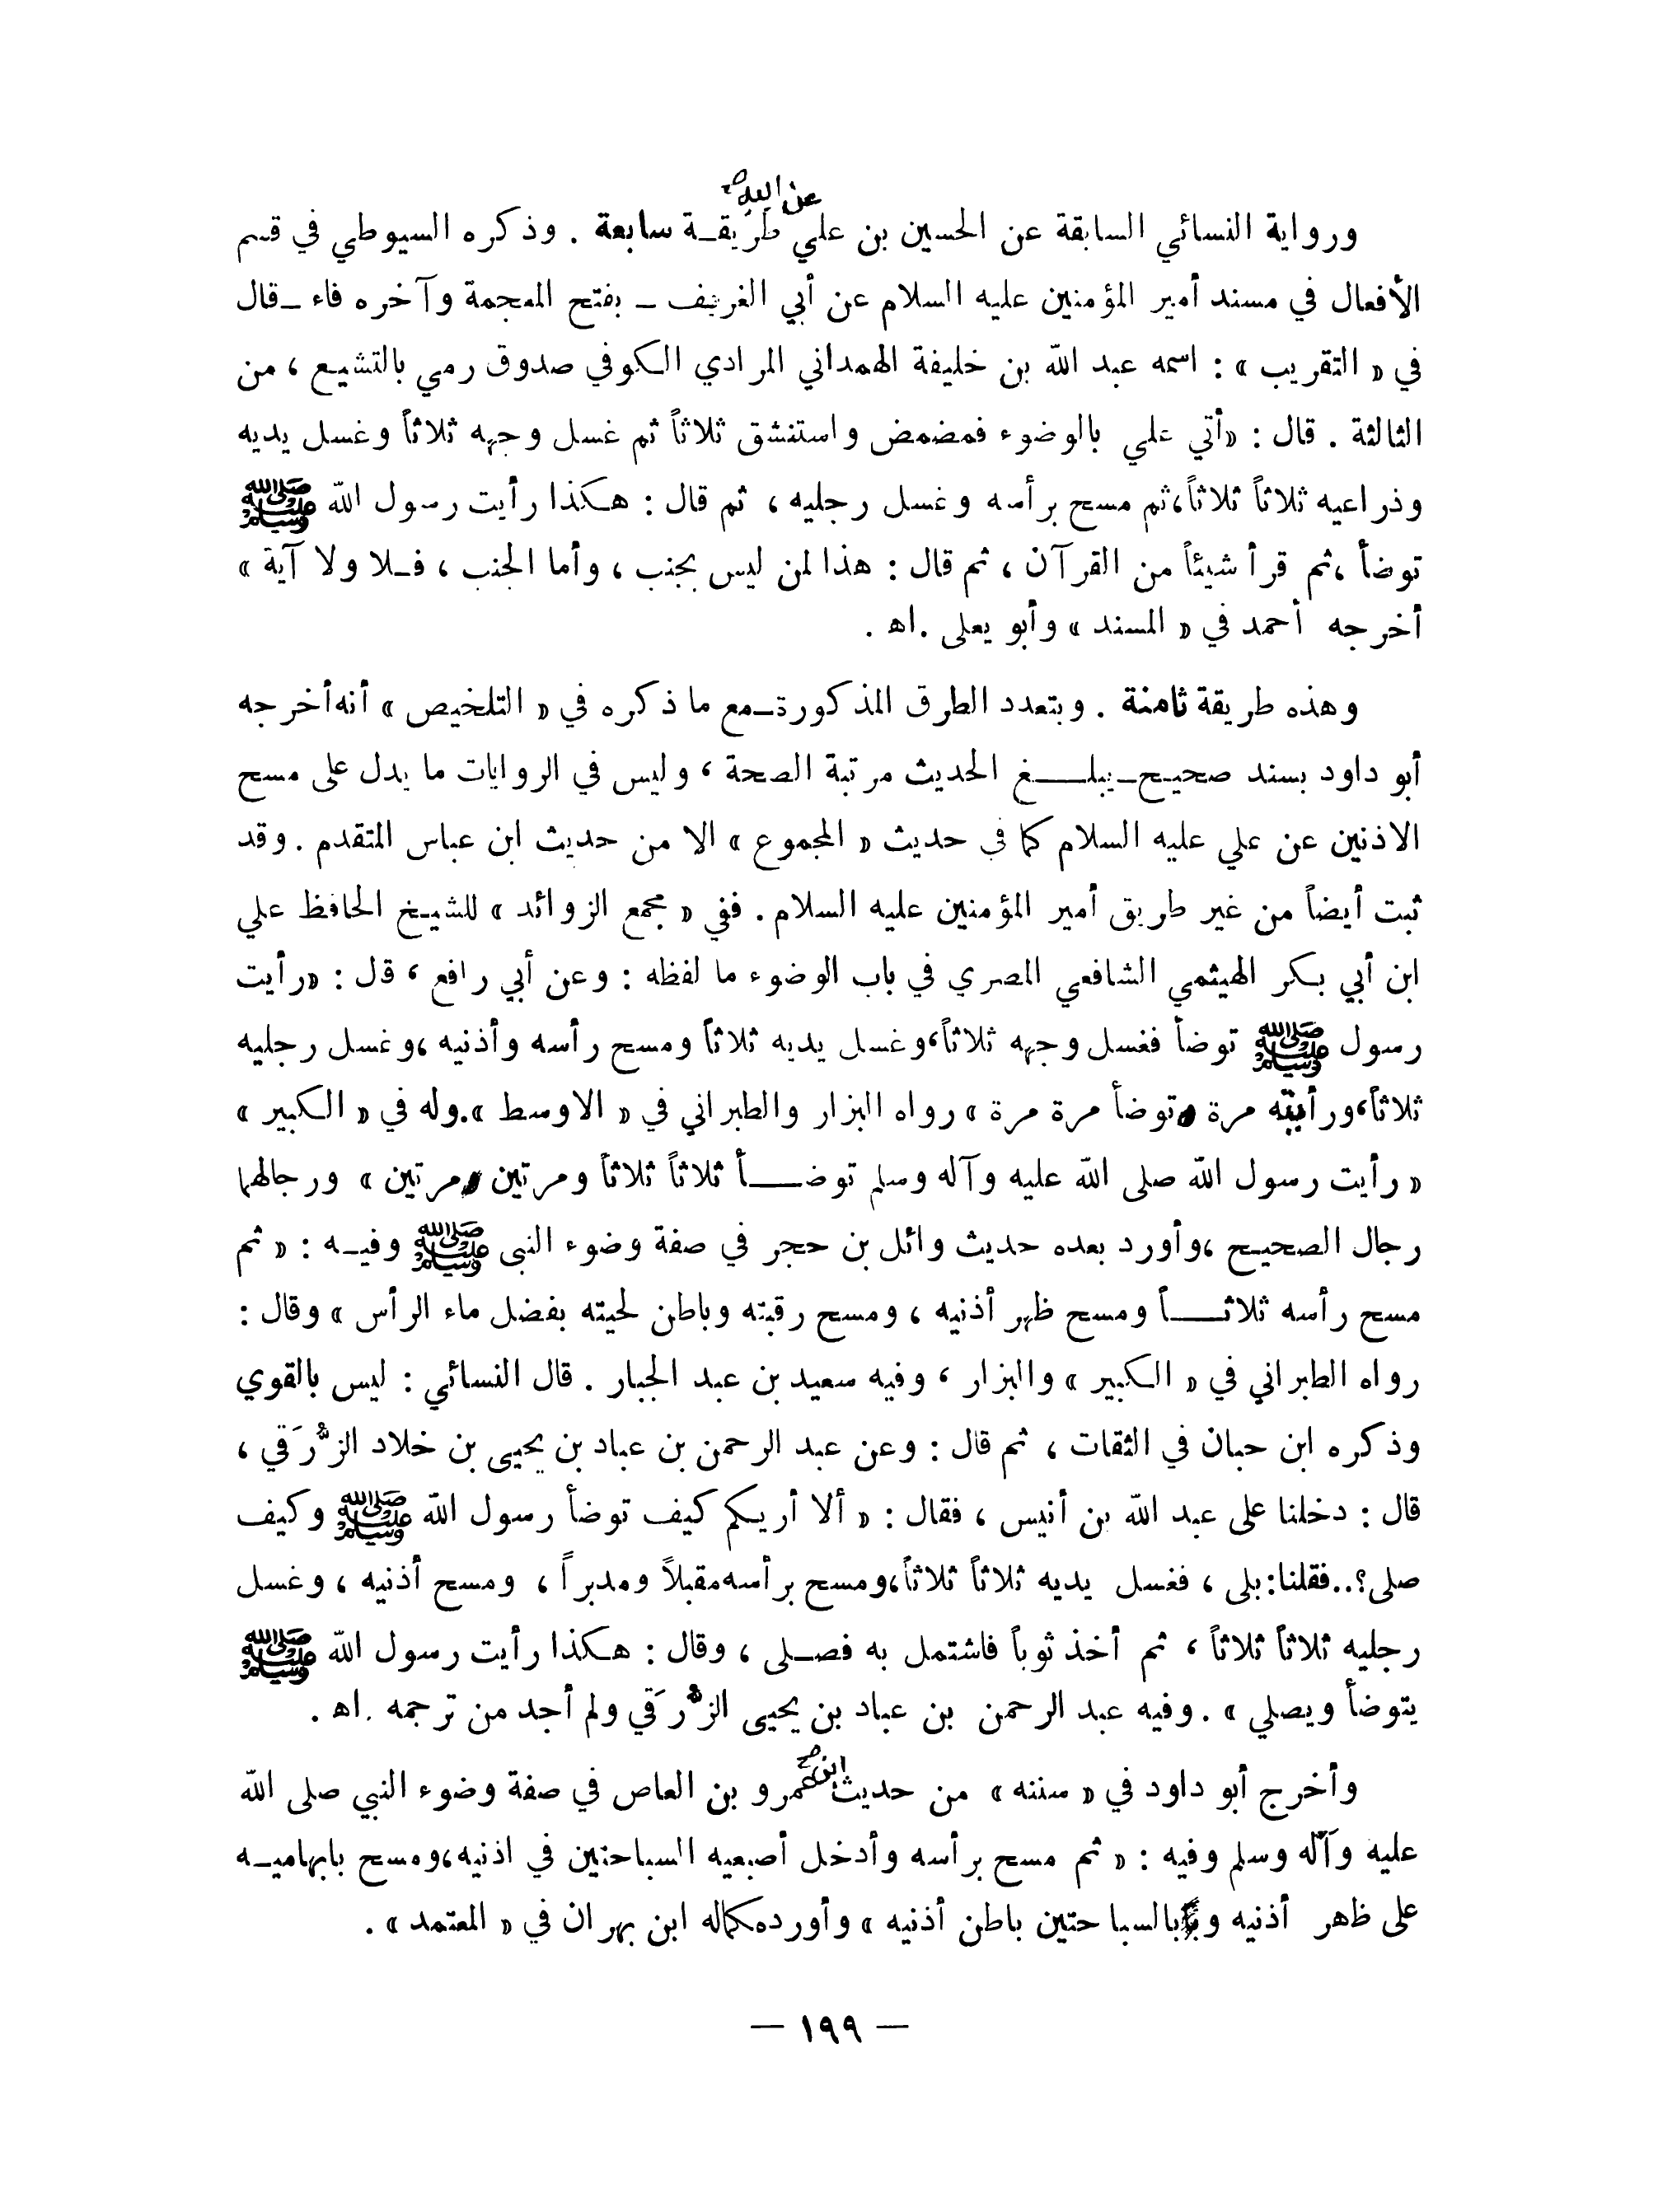 عن أبيه صح
ورواية النسائي السابقة عن الحسين بن علي طريقـة سابعة . وذكره السيوطي في قسم
الأفعال في مسند أمير المؤمنين عليه السلام عن أبي الغريف – بفتح المعجمة وآخره فاء – قال
في « التقريب » : اسمه عبد الله بن خليفة الهمداني المرادي الكوفي صدوق رمي بالتشيع ، من
الثالثة . قال : «أتي علي بالوضوء فمضمض واستنشق ثلاثاً ثم غسل وجهه ثلاثاً وغسل يديه
وذراعيه ثلاثاً ثلاثاً،ثم مسح برأسه وغسل رجليه ، ثم قال : هكذا رأيت رسول الله ﷺ
توضأ ،ثم قرأ شيئاً من القرآن ، ثم قال : هذا لمن ليس بجنب ، وأما الجنب ، فـلا ولا آية »
أخرجه أحمد في « المسند » وأبو يعلى .اه .
وهذه طريقة ثامنة . وبتعدد الطرق المذكورة–مع ما ذكره في « التلخيص » أنه أخرجه
أبو داود بسند صحيح–يبلـــغ الحديث مرتبة الصحة ، وليس في الروايات ما يدل على مسح
الاذنين عن علي عليه السلام كما في حديث « المجموع » الا من حديث ابن عباس المتقدم . وقد
ثبت أيضاً من غير طريق أمير المؤمنين عليه السلام . ففي « مجمع الزوائد » للشيخ الحافظ علي
ابن أبي بكر الهيثمي الشافعي المصري في باب الوضوء ما لفظه : وعن أبي رافع ، قل : «رأيت
رسول ﷺ توضأ فغسل وجهه ثلاثاً،وغسل يديه ثلاثاً ومسح رأسه وأذنيه ،وغسل رجليه
ثلاثاً،ورأيته مرة توضأ مرة مرة » رواه البزار والطبراني في « الاوسط ».وله في « الكبير »
« رأيت رسول الله صلى الله عليه وآله وسلم توضـــأ ثلاثاً ثلاثاً ومرتين مرتين » ورجالهما
رجال الصحيح ،وأورد بعده حديث وائل بن حجر في صفة وضوء النبى ﷺ وفيـه : « ثم
مسح رأسه ثلاثـــاً ومسح ظهر أذنيه ، ومسح رقبته وباطن لحيته بفضل ماء الرأس » وقال :
رواه الطبراني في « الكبير » والبزار ، وفيه سعيد بن عبد الجبار . قال النسائي : ليس بالقوي
وذكره ابن حبان في الثقات ، ثم قال : وعن عبد الرحمن بن عباد بن يحيى بن خلاد الزُّرَقي ،
قال : دخلنا على عبد الله بن أنيس ، فقال : « ألا أريكم كيف توضأ رسول الله ﷺ وكيف
صلى؟..فقلنا:بلى ، فغسل يديه ثلاثاً ثلاثاً،ومسح برأسه مقبلاً ومدبراً ، ومسح أذنيه ، وغسل
رجليه ثلاثاً ثلاثاً ، ثم أخذ ثوباً فاشتمل به فصـلى ، وقال : هكذا رأيت رسول الله ﷺ
يتوضأ ويصلي » . وفيه عبد الرحمن بن عباد بن يحيى الزُّرَقي ولم أجد من ترجمه .اه .
وأخرج أبو داود في « سننه » من حديث ابن صح عمرو بن العاص في صفة وضوء النبي صلى الله
عليه وآله وسلم وفيه : « ثم مسح برأسه وأدخل أصبعيه السباحتين في اذنيه،ومسح بابهاميـه
على ظهر أذنيه وبالسباحتين باطن أذنيه » وأورده بكماله ابن بهران في « المعتمد » .
— ١٩٩ —